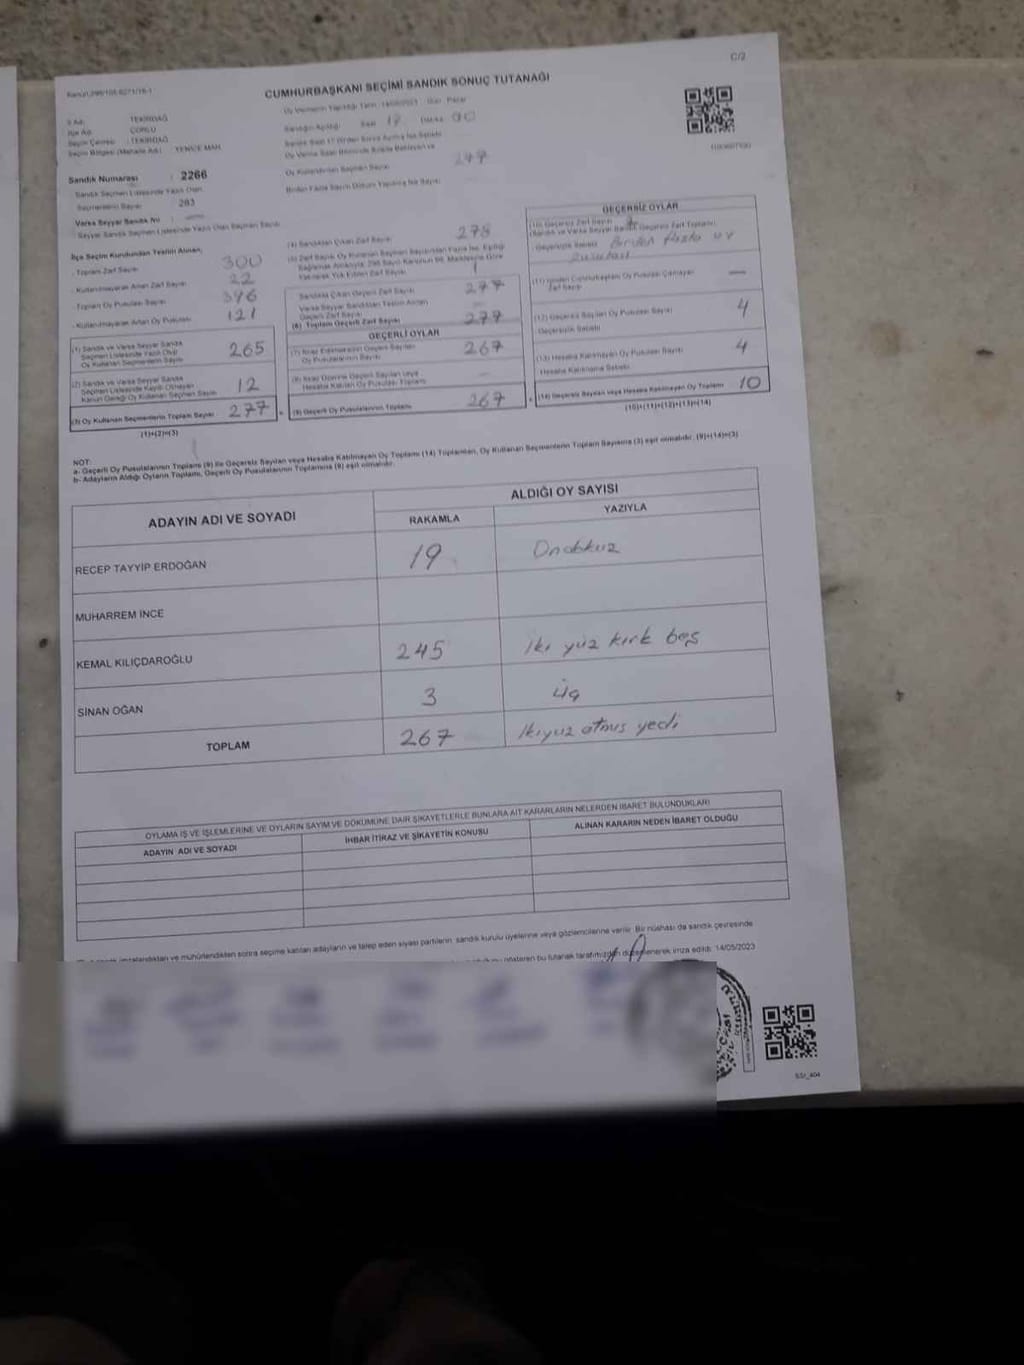 C/2
CUMHURBAŞKANI SEÇİMİ SANDIK SONUÇ TUTANAĞI
İl Adı : TEKİRDAĞ
İlçe Adı : ÇORLU
Seçim Çevresi : TEKİRDAĞ
Seçim Bölgesi (Mahalle Adı) : YENİCE MAH.
Sandık Numarası : 2266
Sandık Seçmen Listesinde Yazılı Olan
Seçmenlerin Sayısı : 283
Varsa Seyyar Sandık No :
Seyyar Sandık Seçmen Listesinde Yazılı Olan Seçmen Sayısı
İlçe Seçim Kurulundan Teslim Alınan;
- Toplam Zarf Sayısı 300
- Kullanılmayarak Artan Zarf Sayısı 22
- Toplam Oy Pusulası Sayısı 396
- Kullanılmayarak Artan Oy Pusulası 121
(1) Sandık ve Varsa Seyyar Sandık
Seçmen Listesinde Yazılı Olup
Oy Kullanan Seçmenlerin Sayısı 265
(2) Sandık ve Varsa Seyyar Sandık
Seçmen Listesinde Kayıtlı Olmayan
Kanun Gereği Oy Kullanan Seçmen Sayısı 12
(3) Oy Kullanan Seçmenlerin Toplam Sayısı 277
(1)+(2)=(3)
Oy Kullandırılan Seçmen Sayısı
(4) Sandıktan Çıkan Zarf Sayısı 278
Sandıkta Çıkan Geçerli Zarf Sayısı 277
Varsa Seyyar Sandıktan Teslim Alınan
Geçerli Zarf Sayısı
(6) Toplam Geçerli Zarf Sayısı 277
GEÇERLİ OYLAR
(7) İtiraz Edilmeksizin Geçerli Sayılan
Oy Pusulalarının Sayısı 267
(8) İtiraz Üzerine Geçerli Sayılan veya
Hesaba Katılan Oy Pusulası Toplamı
(9) Geçerli Oy Pusulalarının Toplamı 267
GEÇERSİZ OYLAR
Geçersizlik Sebebi Birden fazla oy
pusulası
(12) Geçersiz Sayılan Oy Pusulası Sayısı 4
Geçersizlik Sebebi
(13) Hesaba Katılmayan Oy Pusulası Sayısı 4
Hesaba Katılmama Sebebi
(14) Geçersiz Sayılan veya Hesaba Katılmayan Oy Toplamı 10
(10)+(11)+(12)+(13)=(14)
NOT:
a- Geçerli Oy Pusulalarının Toplamı (9) ile Geçersiz Sayılan veya Hesaba Katılmayan Oy Toplamı (14) Toplamları, Oy Kullanan Seçmenlerin Toplam Sayısına (3) eşit olmalıdır. (9)+(14)=(3)
b- Adayların Aldığı Oyların Toplamı, Geçerli Oy Pusulalarının Toplamına (9) eşit olmalıdır.
ADAYIN ADI VE SOYADI
ALDIĞI OY SAYISI
RAKAMLA YAZIYLA
RECEP TAYYİP ERDOĞAN 19 Ondokuz
MUHARREM İNCE
KEMAL KILIÇDAROĞLU 245 İki yüz kırk beş
SİNAN OĞAN 3 üç
TOPLAM 267 İkiyüz atmış yedi
OYLAMA İŞ VE İŞLEMLERİNE VE OYLARIN SAYIM VE DÖKÜMÜNE DAİR ŞİKAYETLERLE BUNLARA AİT KARARLARIN NELERDEN İBARET BULUNDUKLARI
ADAYIN ADI VE SOYADI İHBAR İTİRAZ VE ŞİKAYETİN KONUSU ALINAN KARARIN NEDEN İBARET OLDUĞU
imzalandıktan ve mühürlendikten sonra seçime katılan adayların ve talep eden siyasi partilerin sandık kurulu üyelerine veya gözlemcilerine verilir. Bir nüshası da sandık çevresinde
gösteren bu tutanak tarafımızdan düzenlenerek imza edildi. 14/05/2023